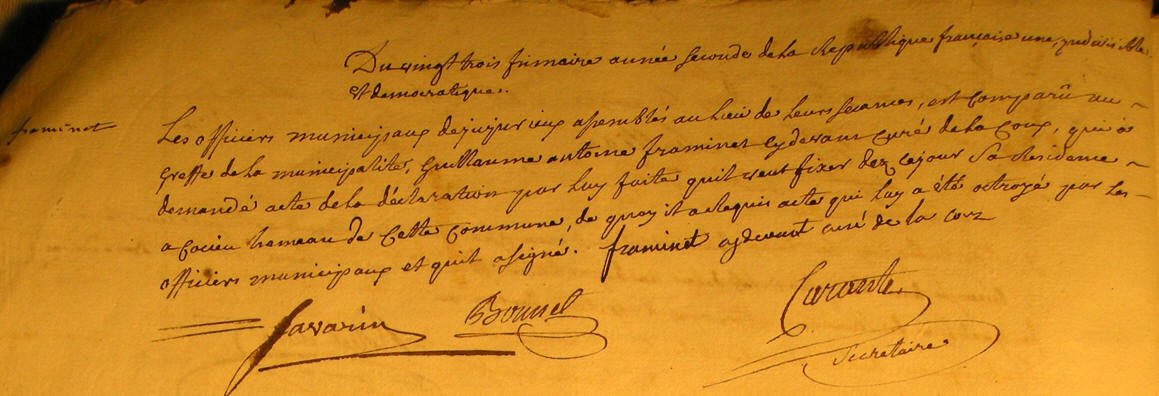 Du vingt trois frimaire année seconde de la Republique française une, indivisible
et democratique.
framinet
Les officiers municipaux de jujurieux assemblés au lieu de leurs seances, est comparû au
greffe de la municipalité, Guillaume antoine framinet cydevant curé de la Coux, qui a
demandé acte de la déclaration par luy faite qu'il veut fixer dez cejour Sa Residence
a Cocieu hameau de Cette commune, de quoy il a Requis acte qui luy a été octroyé par les
officiers municipaux et quil a signé. framinet cydevant curé de la coux
Savarin Bonnet Carante
Secretaire